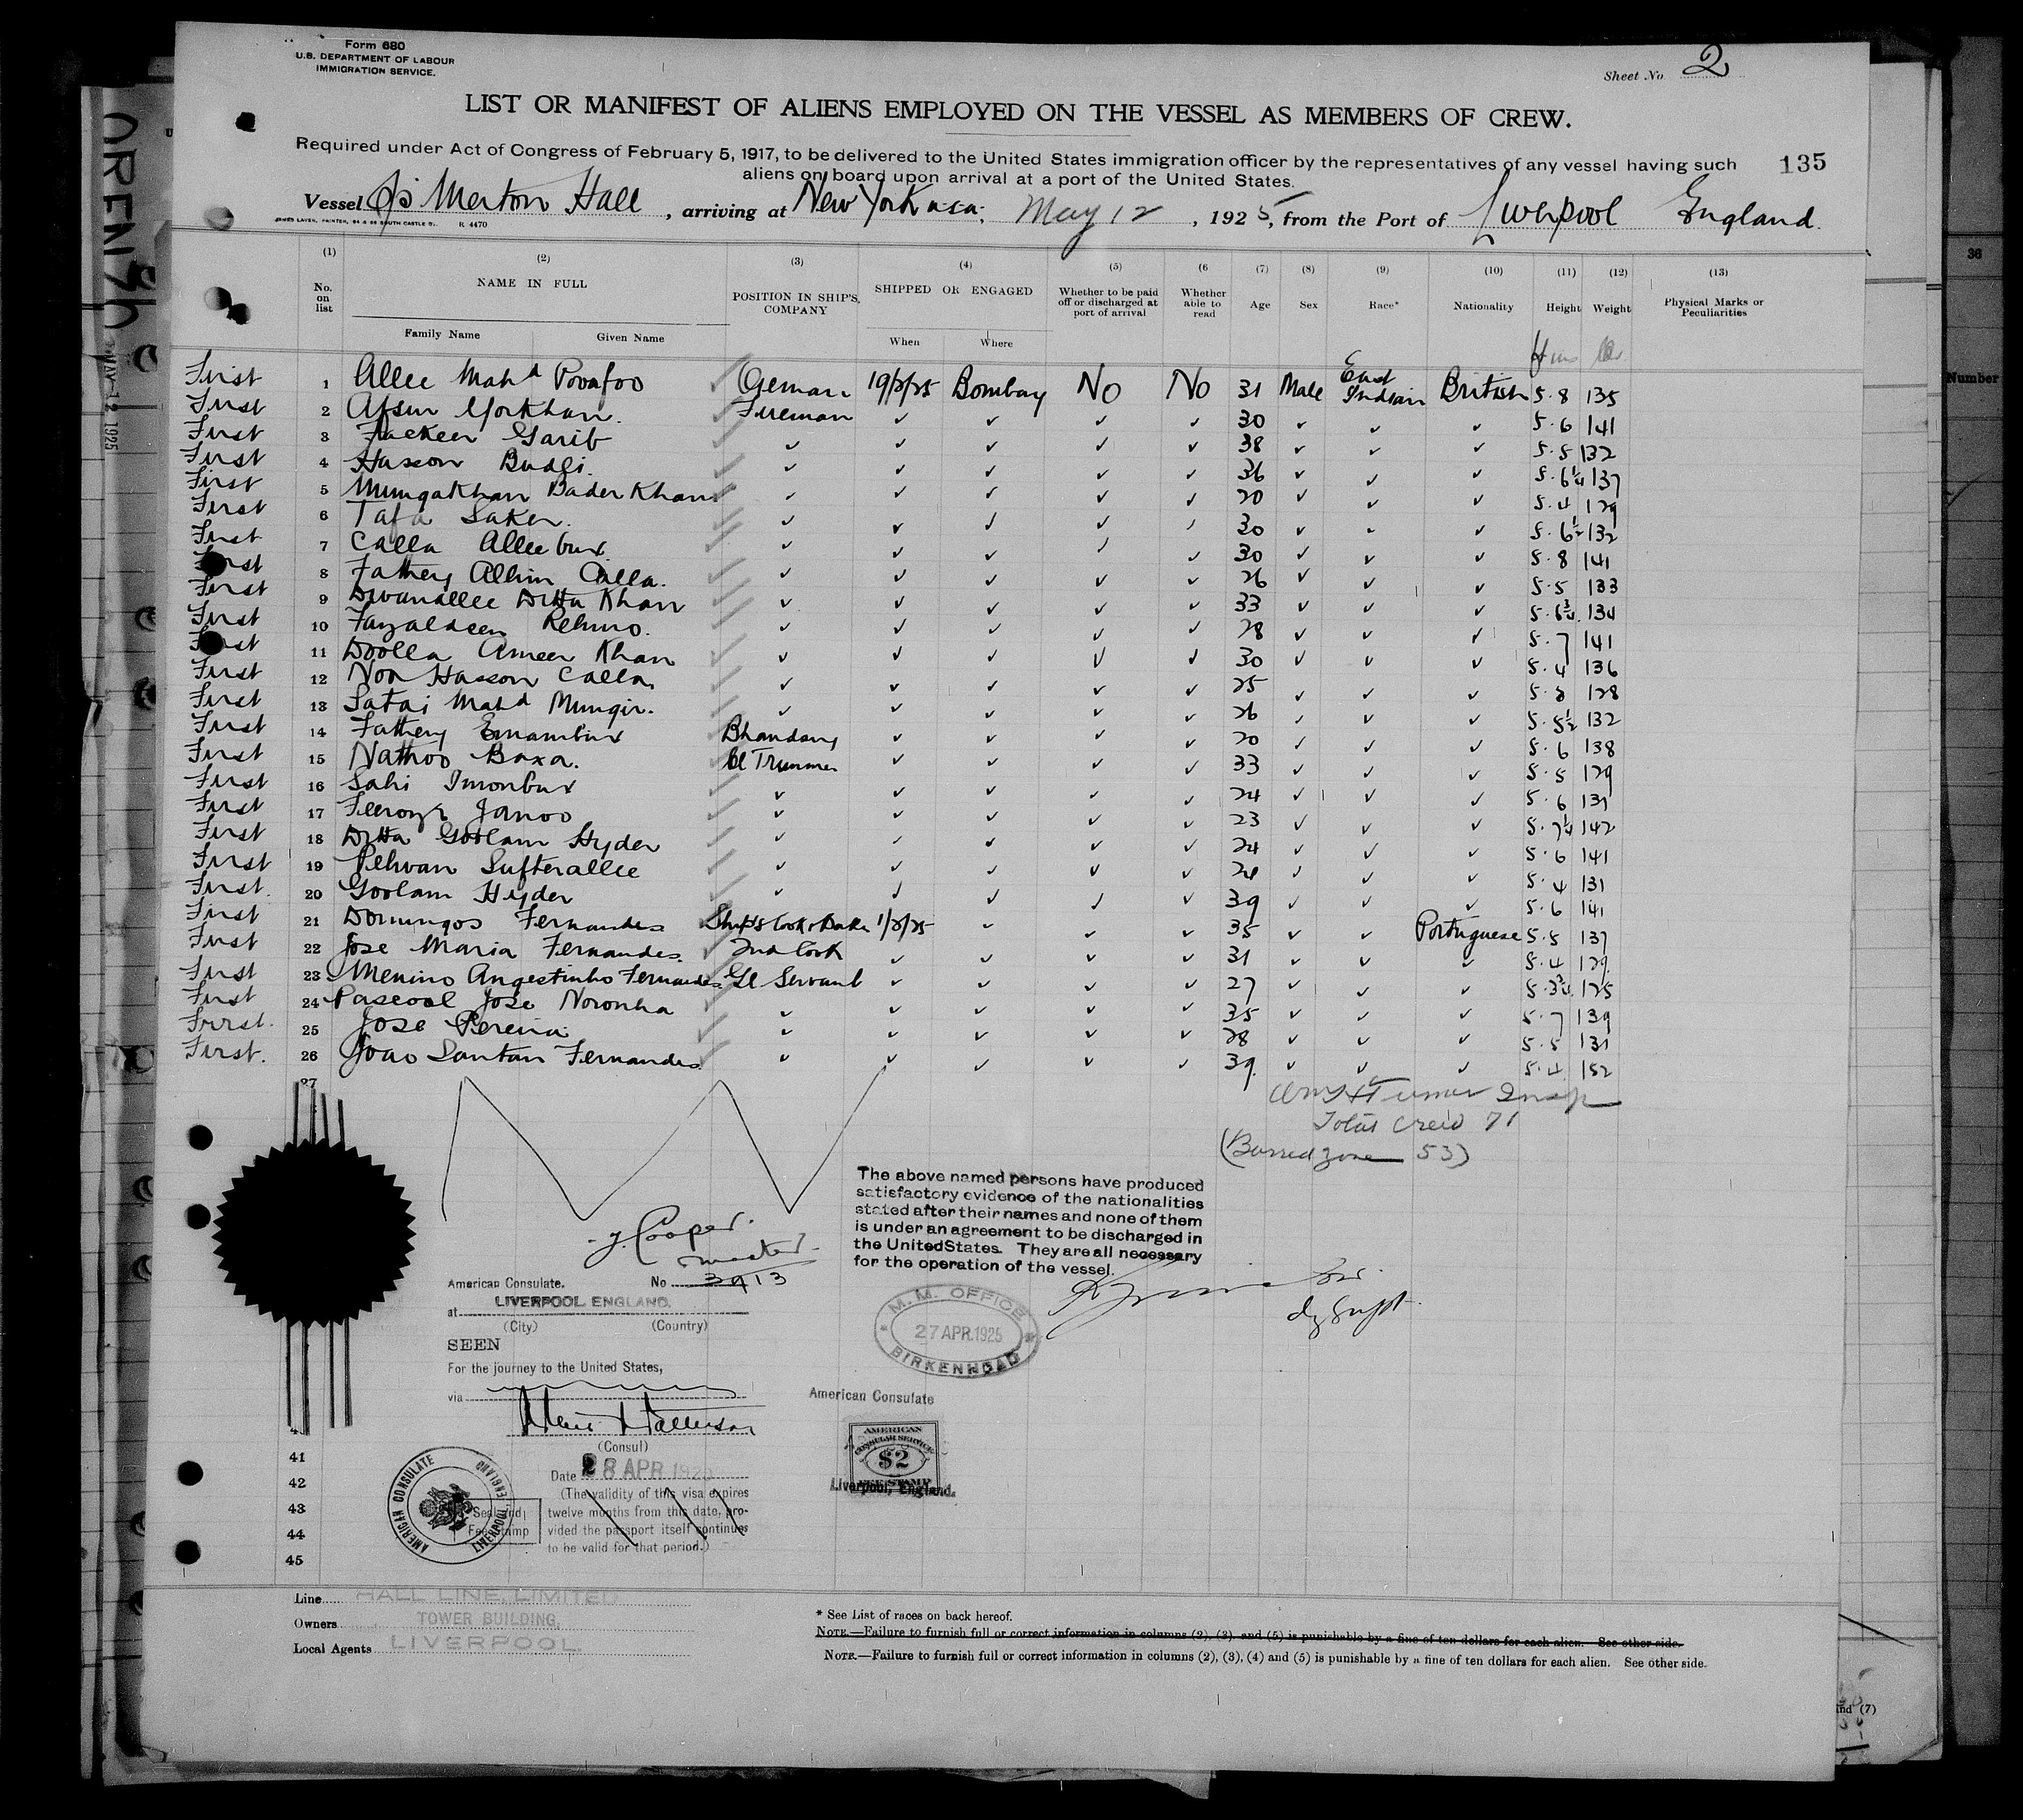 Form 680
U.S. DEPARTMENT OF LABOUR
IMMIGRATION SERVICE.
Sheet No 2
LIST OR MANIFEST OF ALIENS EMPLOYED ON THE VESSEL AS MEMBERS OF CREW.
Required under Act of Congress of February 5, 1917, to be delivered to the United States immigration officer by the representatives of any vessel having such
aliens on board upon arrival at a port of the United States.
135
Vessel S/S Merton Hall, arriving at New York usa; May 12, 1925, from the Port of Liverpool England.
R 4470
(1) (2) (3) (4) (5) (6 (7) (8) (9) (10) (11) (12) (13)
No. on list NAME IN FULL POSITION IN SHIP'S COMPANY SHIPPED OR ENGAGED Whether to be paid off or discharged at port of arrival Whether able to read Age Sex Race* Nationality Height Weight Physical Marks or Peculiarities
Family Name Given Name When Where
First 1 Allee Mahd 19/3/25 Bombay No No 31 Male East Indian British 5.8 135
First 2 Fireman ✓ ✓ ✓ ✓ 30 ✓ ✓ ✓ 5.6 141
First 3 Fackeer Garib ✓ ✓ ✓ ✓ ✓ 38 ✓ ✓ ✓ 5.5 132
First 4 Hasson Budgi. ✓ ✓ ✓ ✓ ✓ 36 ✓ ✓ ✓ 5.6¼ 137
First 5 Mungakhan Bader Khan ✓ ✓ ✓ ✓ ✓ 20 ✓ ✓ ✓ 5.4 129
First 6 Tafa Saker. ✓ ✓ ✓ ✓ ✓ 30 ✓ ✓ ✓ 5.6½ 132
First 7 Calla Alleebux ✓ ✓ ✓ ✓ ✓ 30 ✓ ✓ ✓ 5.8 141
First 8 Fatheny Allim Calla. ✓ ✓ ✓ ✓ ✓ 26 ✓ ✓ ✓ 5.5 133
First 9 Dewanallee Ditta Khan ✓ ✓ ✓ ✓ ✓ 33 ✓ ✓ ✓ 5.6¾ 134
First 10 Fazaldeen ✓ ✓ ✓ ✓ ✓ 28 ✓ ✓ ✓ 5.7 141
First 11 Doolla Ameer Khan ✓ ✓ ✓ ✓ ✓ 30 ✓ ✓ ✓ 5.4 136
First 12 Noa Hasson Calla. ✓ ✓ ✓ ✓ ✓ 25 ✓ ✓ ✓ 5.8 128
First 13 Satai Mahd Mungir. ✓ ✓ ✓ ✓ ✓ 26 ✓ ✓ ✓ 5.5½ 132
First 14 Fatheny Emambux Bhandary ✓ ✓ ✓ ✓ 20 ✓ ✓ ✓ 5.6 138
First 15 Nathoo Baxa. Cl Trimmer ✓ ✓ ✓ ✓ 33 ✓ ✓ ✓ 5.5 129
First 16 Sahi Imonbux ✓ ✓ ✓ ✓ ✓ 24 ✓ ✓ ✓ 5.6 131
First 17 Janoo ✓ ✓ ✓ ✓ ✓ 23 ✓ ✓ ✓ 5.7¼ 142
First 18 Ditta Goolam Hyder ✓ ✓ ✓ ✓ ✓ 24 ✓ ✓ ✓ 5.6 141
First 19 Pehvan Sufterallee ✓ ✓ ✓ ✓ ✓ ✓ ✓ ✓ 5.4 131
First. 20 Goolam Hyder ✓ ✓ ✓ ✓ ✓ 39 ✓ ✓ ✓ 5.6 141
First 21 Domingos Fernandes Ships Cook & Baker 1/3/25 ✓ ✓ ✓ 35 ✓ ✓ Portuguese 5.5 137
First 22 Jose Maria Fernandes. 2nd Cook ✓ ✓ ✓ ✓ 31 ✓ ✓ ✓ 5.4 129
First 23 Menino Angestinho Fernandes Gl Servant ✓ ✓ ✓ ✓ 27 ✓ ✓ ✓ 5.3¾ 125
First 24 Pascoal Jose Noronha ✓ ✓ ✓ ✓ ✓ 35 ✓ ✓ ✓ 5.7 139
First. 25 Jose Pereira ✓ ✓ ✓ ✓ ✓ 28 ✓ ✓ ✓ 5.5 131
First. 26 Joao Santan Fernandes. ✓ ✓ ✓ ✓ ✓ 39. ✓ ✓ ✓ 5.4 152
27
Wm H Turner Insp
Total Crew 71
(Barred zone 53)
The above named persons have produced
satisfactory evidence of the nationalities
stated after their names and none of them
is under an agreement to be discharged in
the United States. They are all necessary
for the operation of the vessel.
J. Cooper.
master.
American Consulate. No 3913
at LIVERPOOL ENGLAND.
(City) (Country)
SEEN
For the journey to the United States,
via
(Consul)
Date 28 APR 1925
(The validity of this visa expires
twelve months from this date, pro-
vided the passport itself continues
to be valid for that period.)
Seal and
Fee Stamp
AMERICAN CONSULATE LIVERPOOL ENGLAND
M.M. OFFICE
27 APR.1925
BIRKENHEAD
dy Supt.
American Consulate
AMERICAN
CONSULAR SERVICE
$2
FEE STAMP
Liverpool, England.
41
42
43
44
45
Line HALL LINE, LIMITED
Owners TOWER BUILDING,
Local Agents LIVERPOOL.
* See List of races on back hereof.
NOTE.—Failure to furnish full or correct information in columns (2), (3) and (5) is punishable by a fine of ten dollars for each alien. See other side.
NOTE.—Failure to furnish full or correct information in columns (2), (3), (4) and (5) is punishable by a fine of ten dollars for each alien. See other side.
36
Number
and (7)
MAY 12 1925